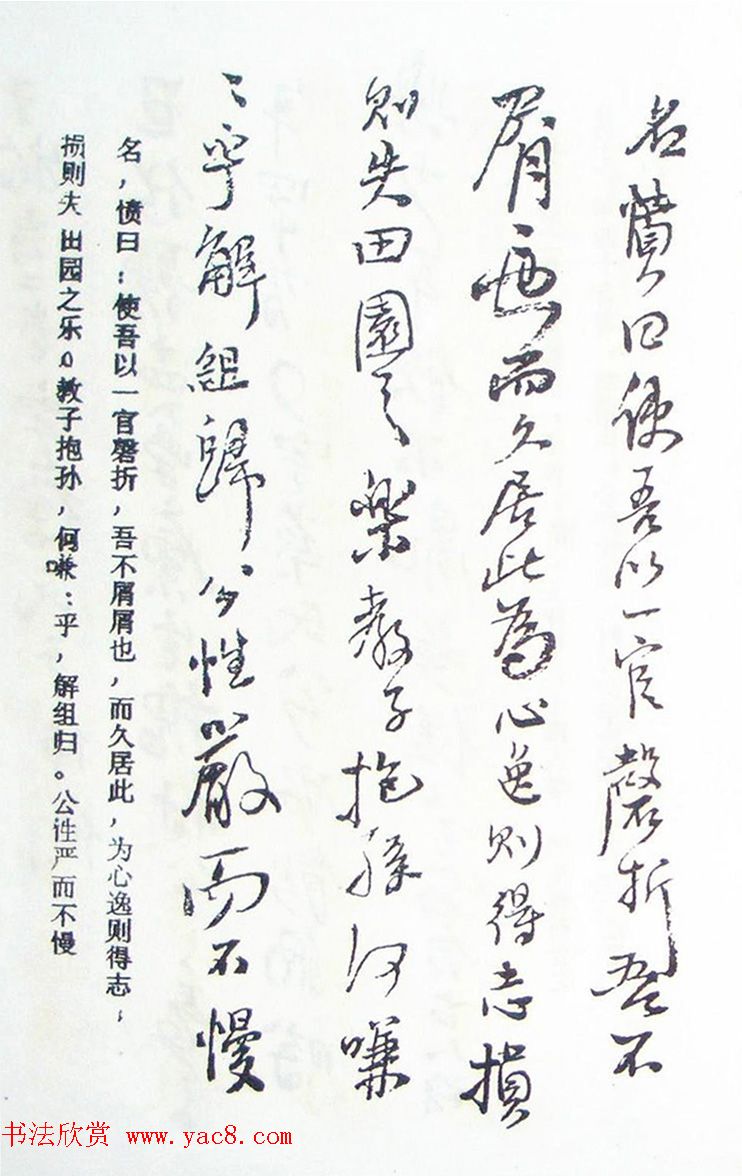 名憤曰使吾以一官磬折吾不
屑〻也而久居此為心逸則得志損
則失田園之樂教子抱孫何嗛
〻乎解組歸公性嚴而不慢
名，愤曰：使吾以一官磬折，吾不屑屑也，而久居此，为心逸则得志，
损则失田园之乐。教子抱孙，何嗛：乎，解组归。公性严而不慢
书法欣赏 www.yac8.com